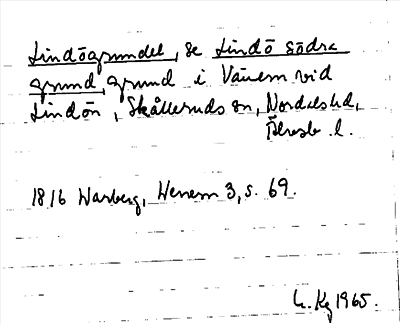 Lindögrundet, se Lindö södra
grund, grund i Vänern vid
Lindön, Skålleruds sn, Nordals hd,
Älvsb. l.
1816 Warberg, Wenern 3, s. 69.
L. Kg 1965.